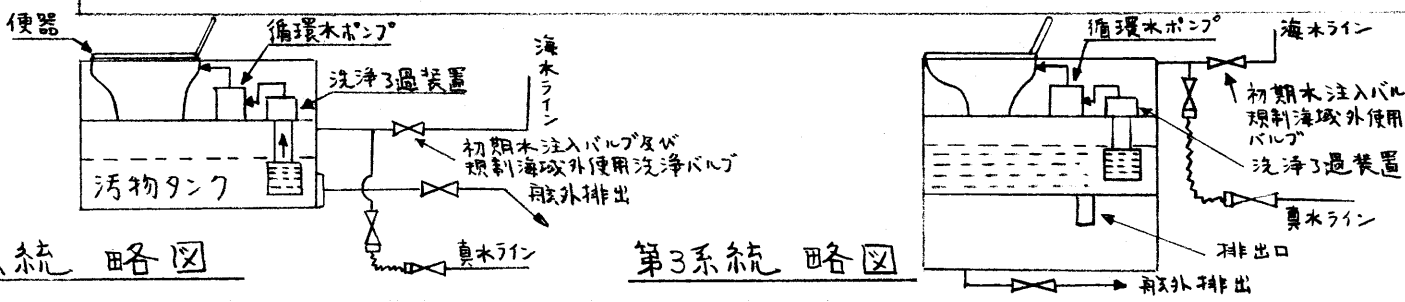 便器
循環水ポンプ
洗浄ろ過装置
海水ライン
初期水注入バルブ及び
規制海域外使用洗浄バルブ
汚物タンク
船外排出
真水ライン
系統 略図
循環水ポンプ
海水ライン
初期水注入バル
規制海域外使用
バルブ
洗浄ろ過装置
真水ライン
排出口
船外排出
第3系統 略図